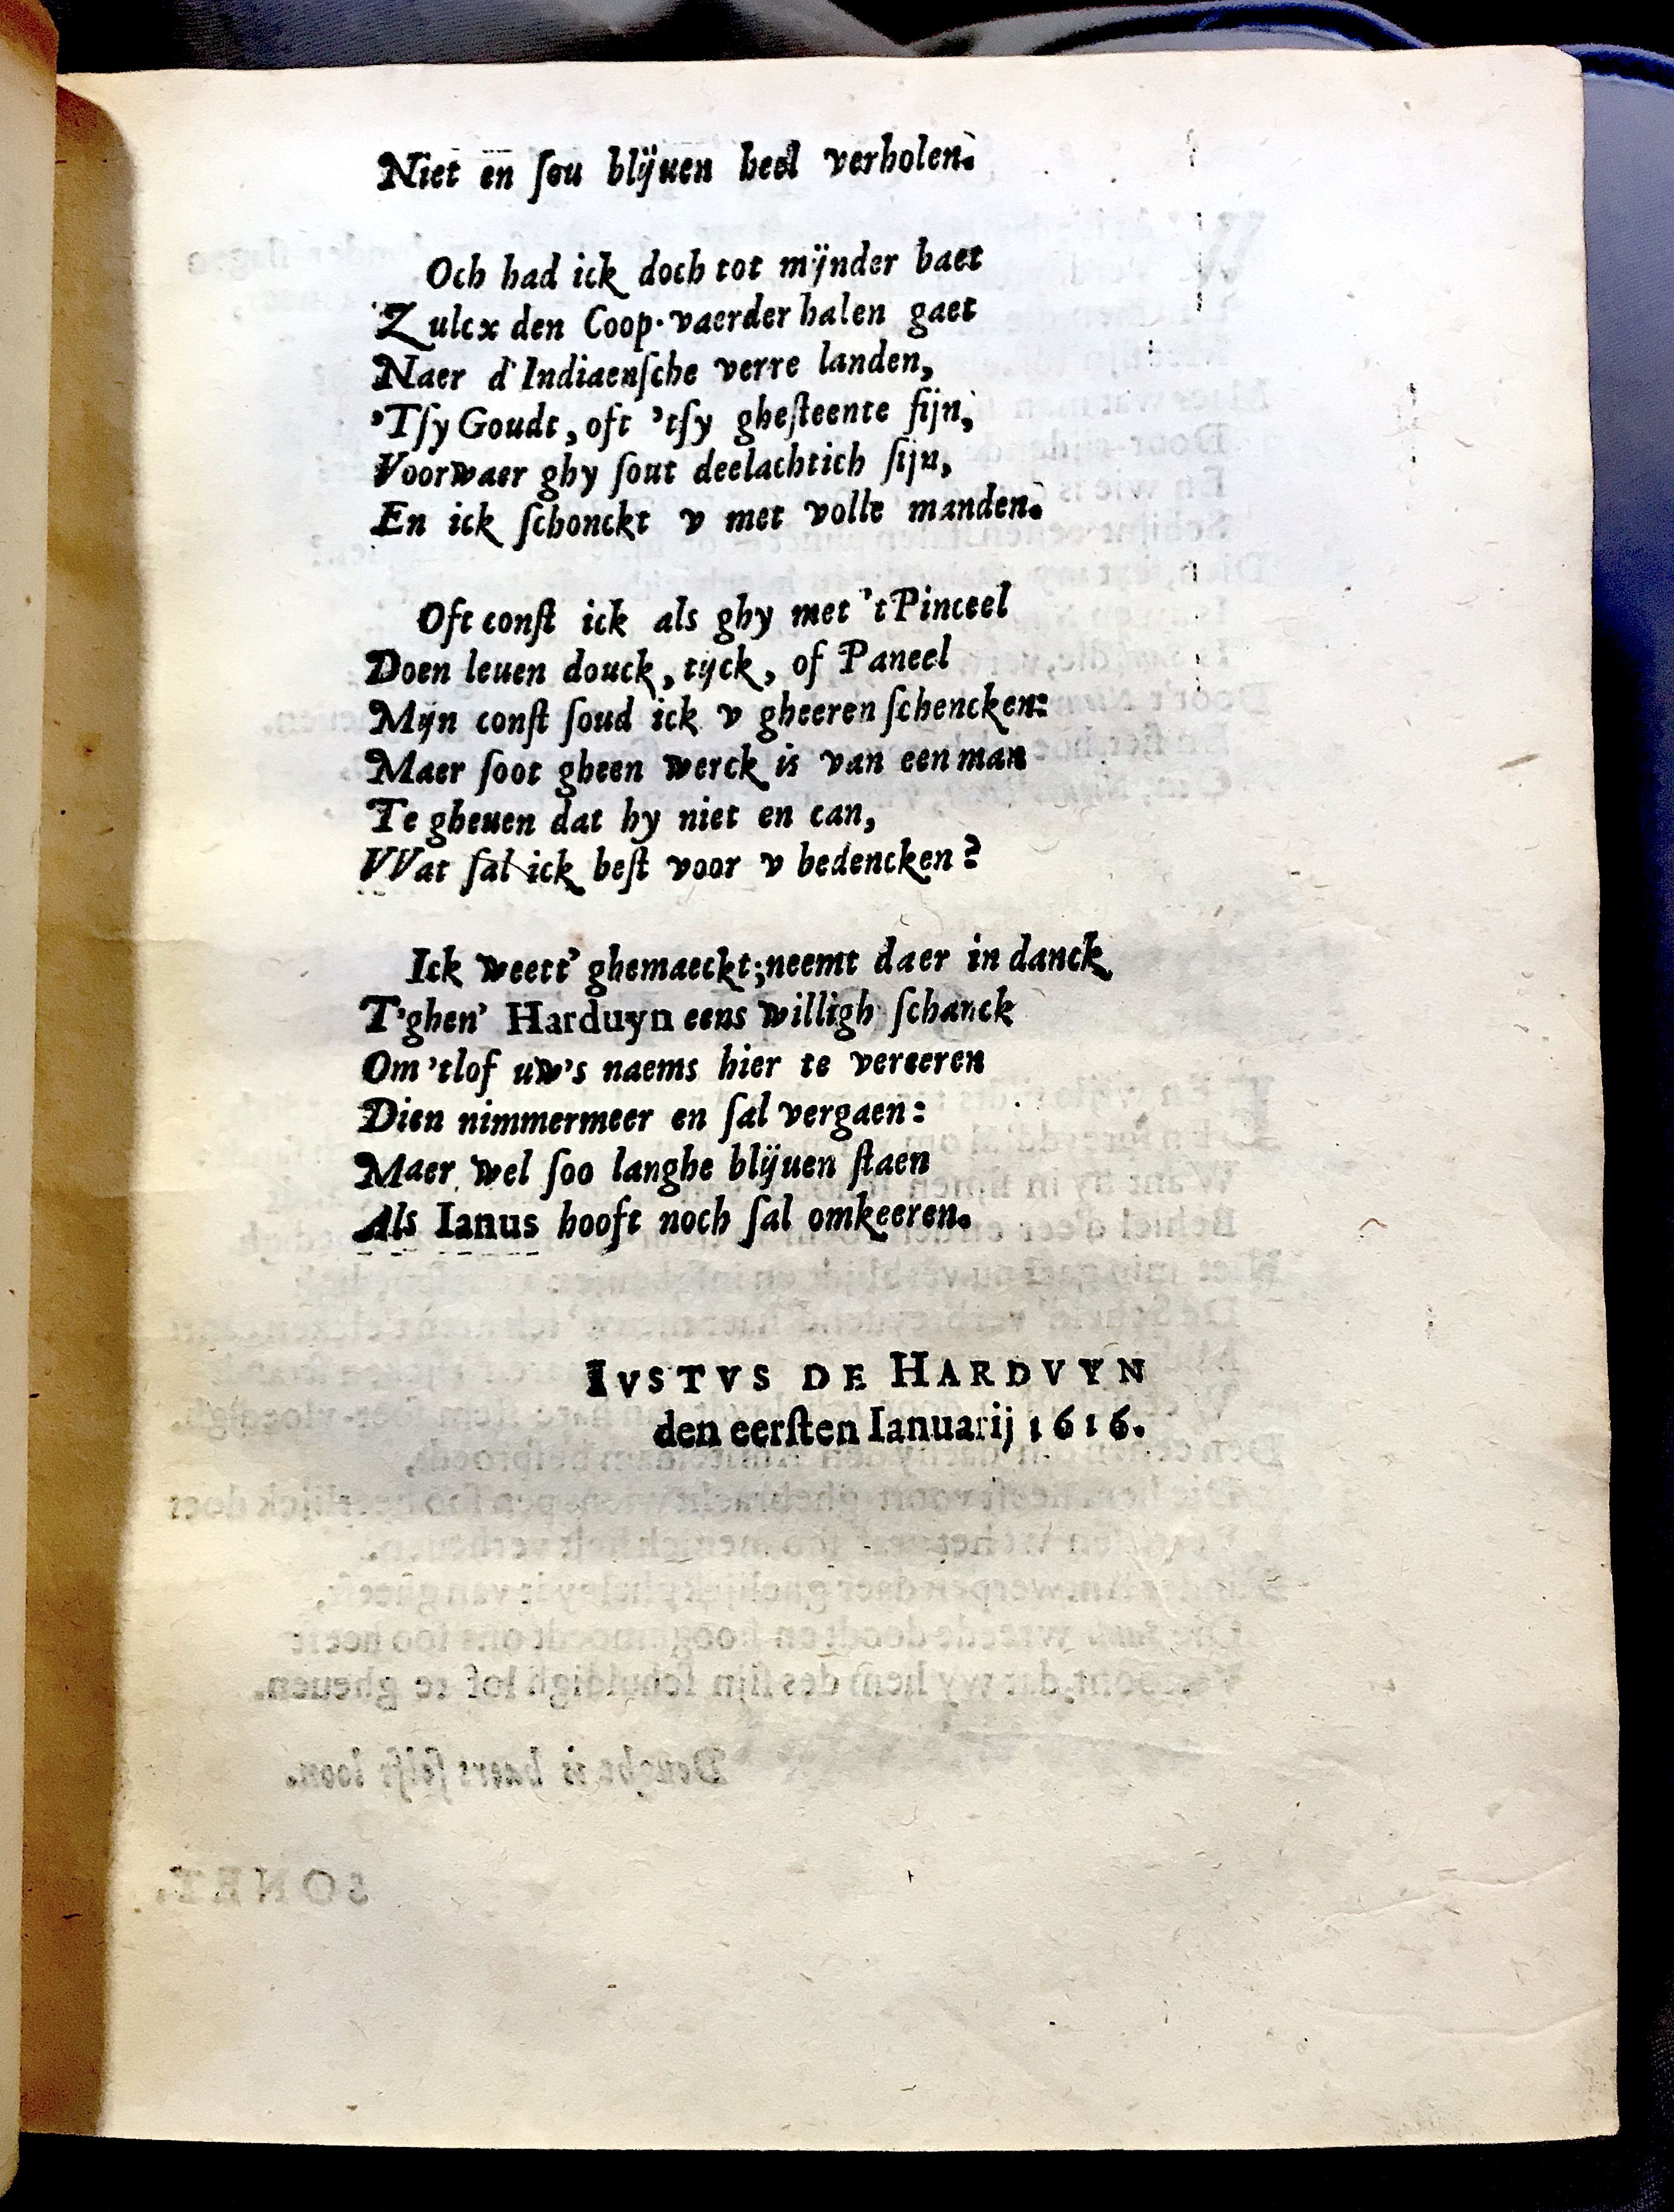 Niet en ſou blijuen heel verholen.
Och had ick doch tot mijnder baet
Zulcx den Coop-vaerder halen gaet
Naer d'Indiaenſche verre landen,
'Tſy Goudt, oft 'tſy gheſteente fijn,
Voorwaer ghy ſout deelachtich ſijn,
En ick ſchonckt v met volle manden.
Oft conſt ick als ghy met 't Pinceel
Doen leuen douck, tijck, of Paneel
Mijn conſt ſoud ick v gheeren ſchencken:
Maer ſoot gheen werck is van een man
Te gheuen dat hy niet en can,
VVat ſal ick beſt voor v bedencken?
Ick weett' ghemaeckt; neemt daer in danck
T'ghen' Harduyn eens willigh ſchanck
Om 'tlof uw's naems hier te vereeren
Dien nimmermeer en ſal vergaen:
Maer wel ſoo langhe blijuen ſtaen
Als Ianus hooft noch ſal omkeeren.
IVSTVS DE HARDVYN
den eerſten Ianuarij 1616.